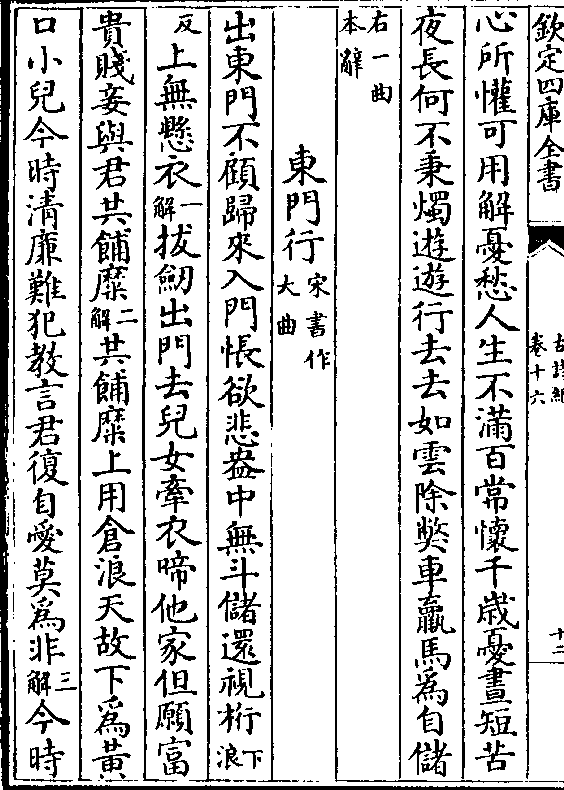 欽定四庫全書
卷十六
十二
心所懽可用解憂愁人生不滿百常懷千歳憂晝短苦
夜長何不秉燭遊遊行去去如雲除弊車羸馬為自儲
右一曲
本辭
東門行宋書作
大曲
出東門不顧歸來入門悵欲悲盎中無斗儲還視桁下浪
反上無懸衣一解拔劒出門去兒女牽衣啼他家但願富
貴賤妾與君共餔糜二解共餔糜上用倉浪天故下為黄
口小兒今時清廉難犯教言君復自愛莫為非三解今時